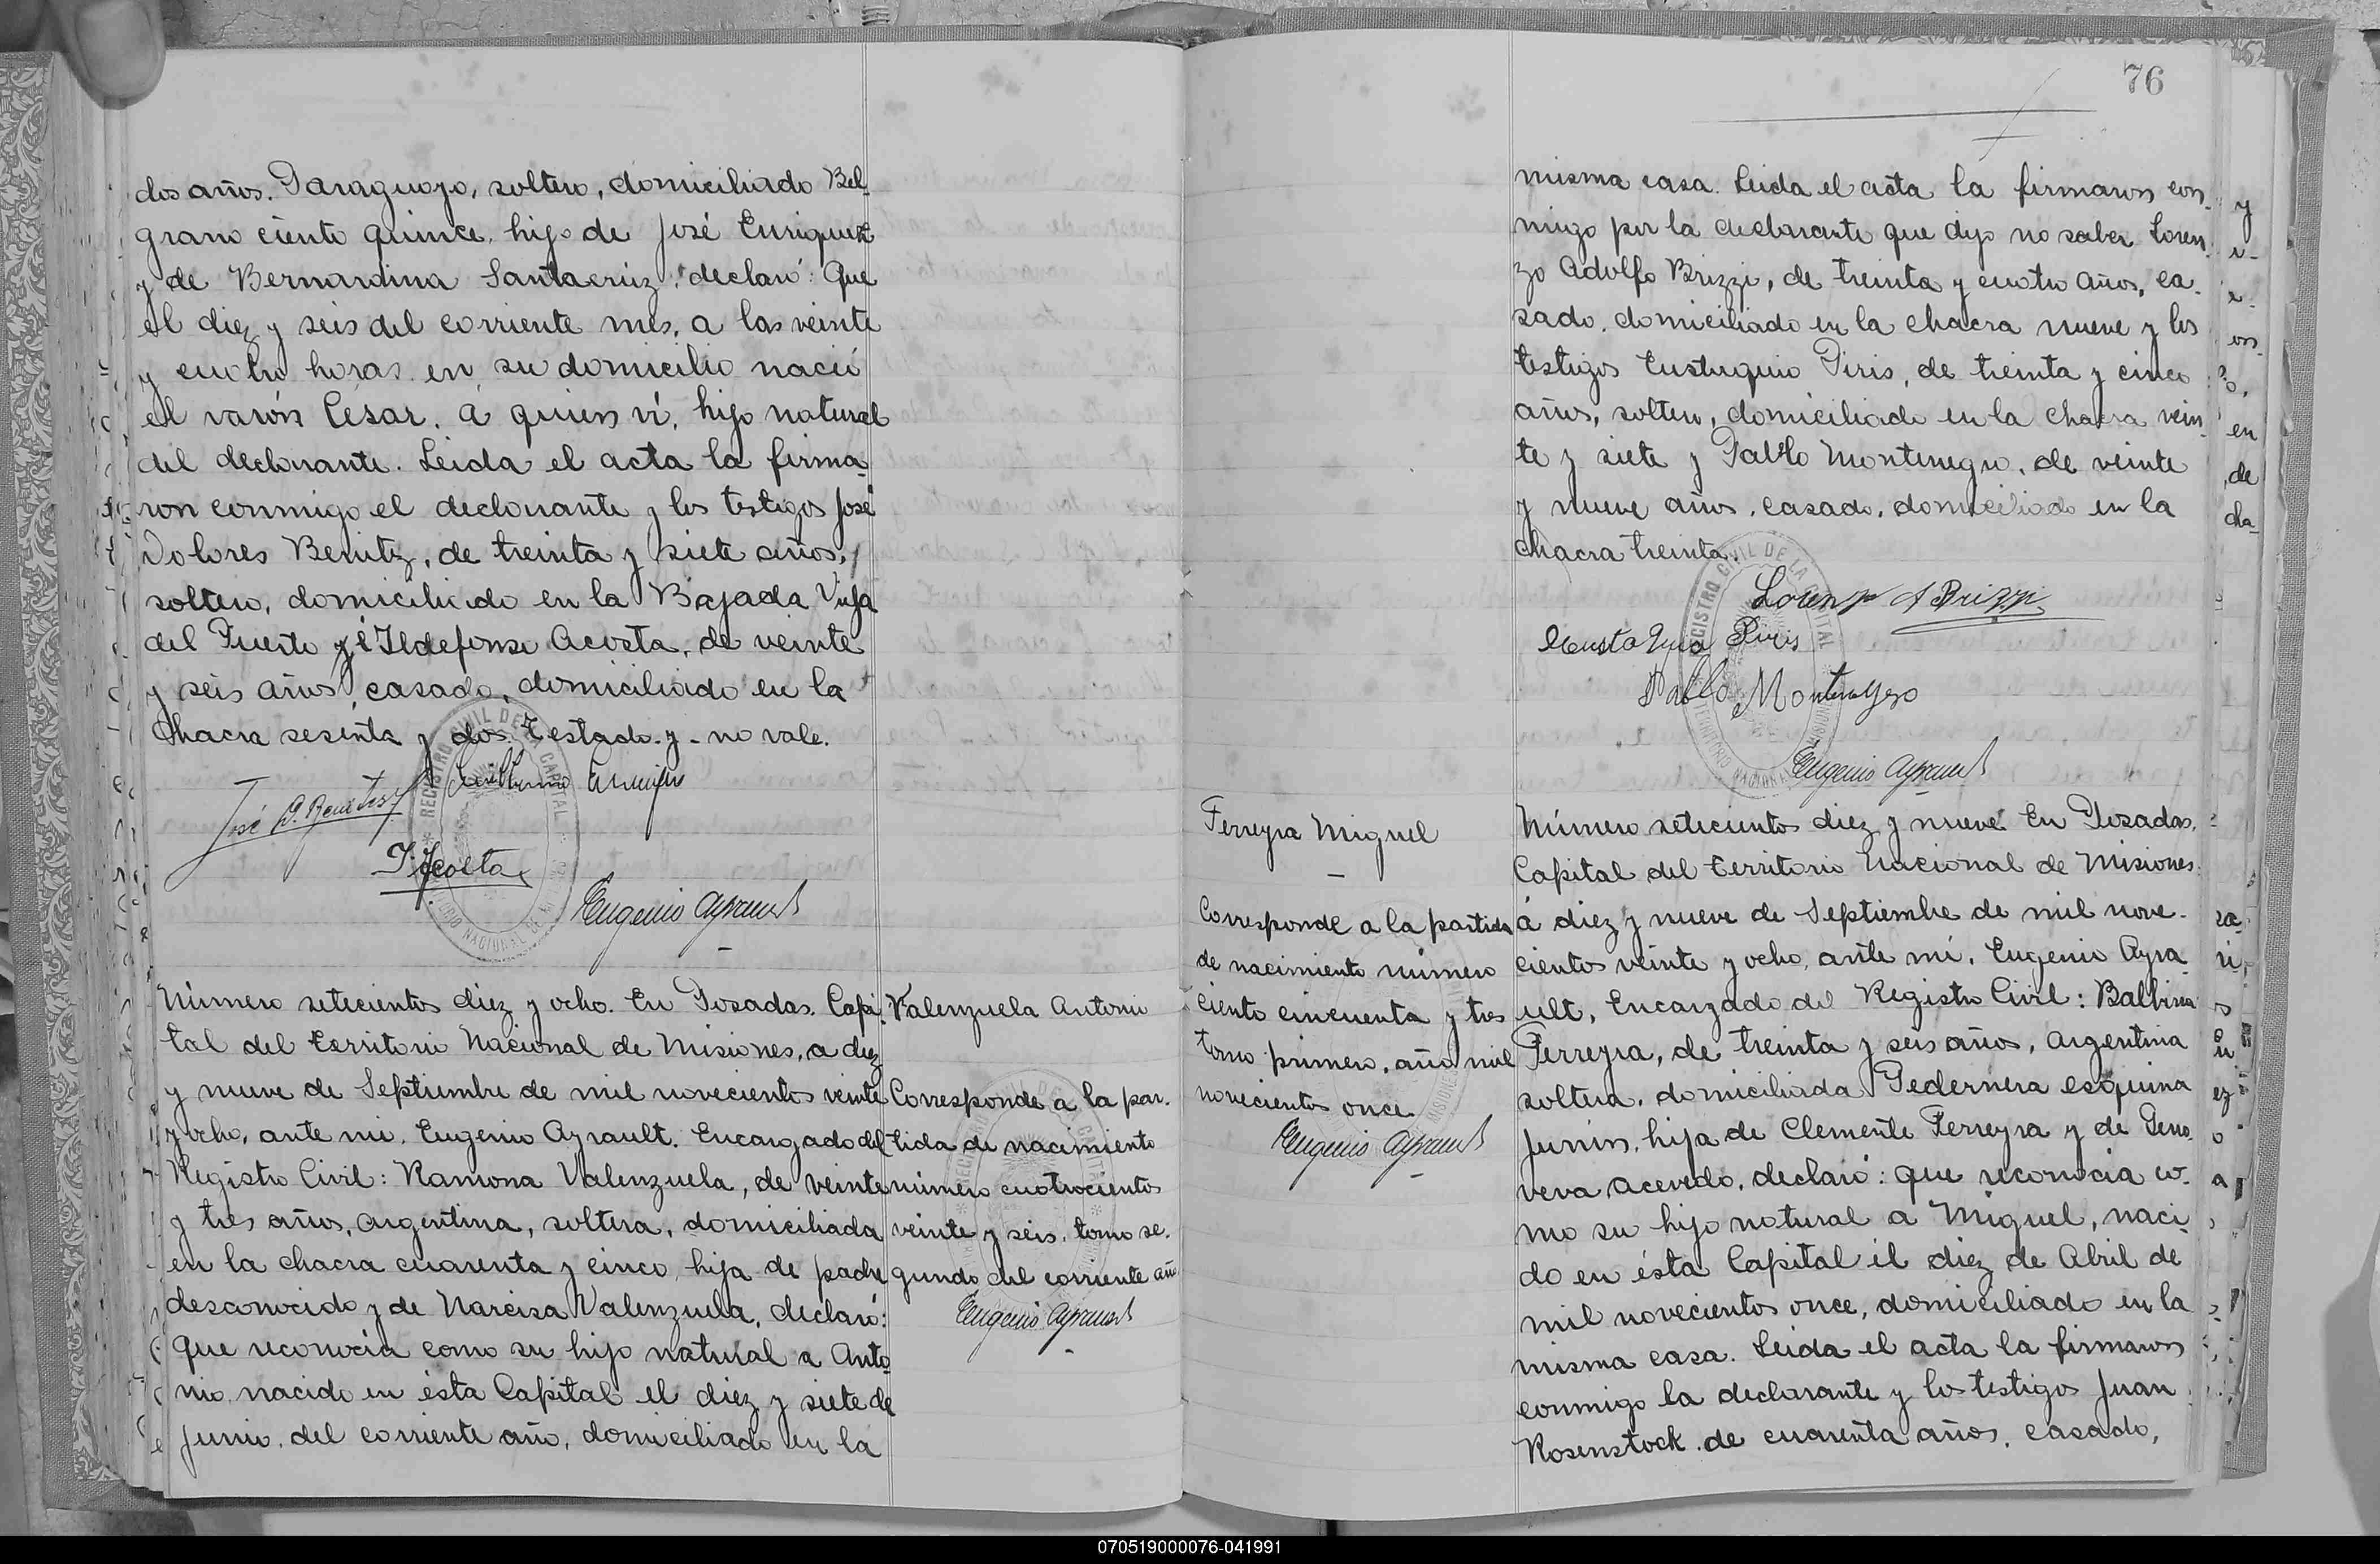 dos años. Paraguayo, soltero, domiciliado Bel-
grano ciento quince, hijo de José Enriquez
y de Bernardina Santacrúz, declaró: Que
el diez y seis del corriente mes, a las veinte
y cuatro horas en su domicilio nació
el varón César, á quien ví, hijo natural
del declarante. Leida el acta la firma-
ron conmigo el declarante y los testigos José
Dolores Benitz, de treinta y siete años,
soltero, domiciliado en la Bajada Vieja
del Puerto y é Ildefonso Acosta, de veinte
y seis años, casado, domiciliado en la
Chacra sesenta y dos. Testado-y-no vale.
Guillermo Enriquez
José D. Benites
I. Acosta
Eugenio Ayrault
REGISTRO CIVIL DE LA CAPITAL
Número setecientos diez y ocho. En Posadas, Capi-
tal del territorio Nacional de Misiones, a diez
y nueve de Septiembre de mil novecientos veinte
y ocho, ante mi, Eugenio Ayrault, Encargado del
Registro Civil: Ramona Valenzuela, de veinte
y tres años, argentina, soltera, domiciliada
en la chacra cuarenta y cinco, hija de padre
desconocido y de Narcisa Valenzuela, declaró:
Que reconocía como su hijo natural a Anto-
nio, nacido en ésta Capital el diez y siete de
Junio, del corriente año, domiciliado en la
Valenzuela Antonio
Corresponde a la par-
tida de nacimiento
número cuatrocientos
veinte y seis, tomo se-
gundo del corriente año
Eugenio Ayrault
76
misma casa. Leida el acta la firmaron con-
migo por la declarante que dijo no saber Loren-
zo Adolfo Brizzi, de treinta y cuatro años, ca-
sado, domiciliado en la chacra nueve y los
testigos Eustaquio Piris, de treinta y cinco
años, soltero, domiciliado en la chacra vein-
te y siete y Pablo Montenegro, de veinte
y nueve años, casado, domiciliado en la
chacra treinta.
Lorenzo A Brizzi
Eustaquio Piris
Pablo Montenegro
Eugenio Ayrault
REGISTRO CIVIL DE LA CAPITAL
Ferreyra Miguel
Corresponde a la partida
de nacimiento número
ciento cincuenta y tres
tomo primero, año mil
novecientos once.
Eugenio Ayrault
Número setecientos diez y nueve. En Posadas,
Capital del territorio Nacional de Misiones
á diez y nueve de Septiembre de mil nove-
cientos veinte y ocho, ante mi, Eugenio Ayra-
ult, Encargado del Registro Civil: Balbina
Ferreyra, de treinta y seis años, Argentina
soltera, domiciliada Pedernera esquina
Junín, hija de Clemente Ferreyra y de Geno-
veva Acevedo, declaró: que reconocía co-
mo su hijo natural a Miguel, naci-
do en ésta Capital el diez de Abril de
mil novecientos once, domiciliado en la
misma casa. Leida el acta la firmaron
conmigo la declarante y los testigos Juan
Rosenstock de cuarenta años, casado,
070519000076-041991